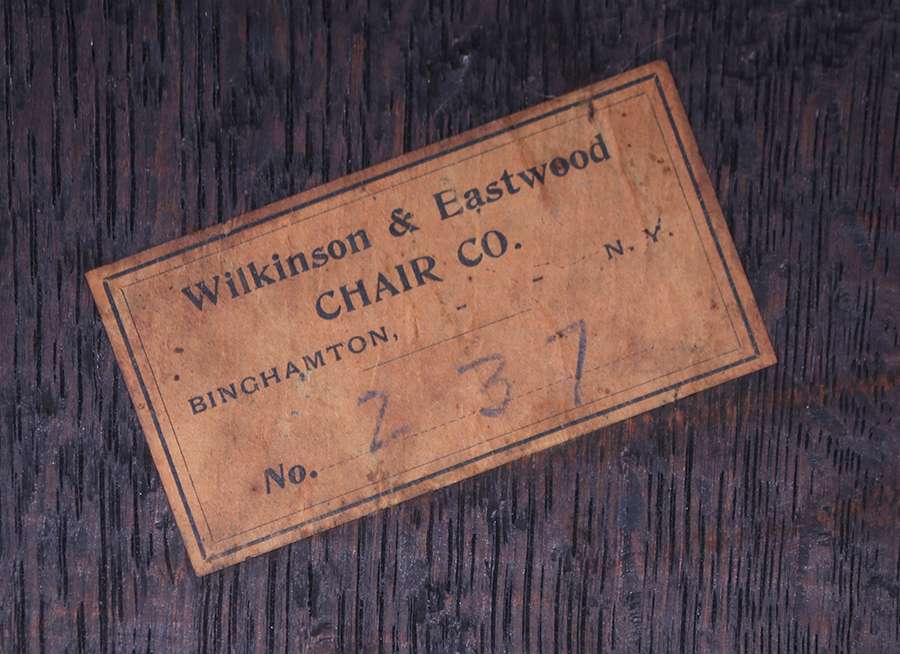 Wilkinson & Eastwood
CHAIR CO.
BINGHAMTON, - - N. Y.
No. 237